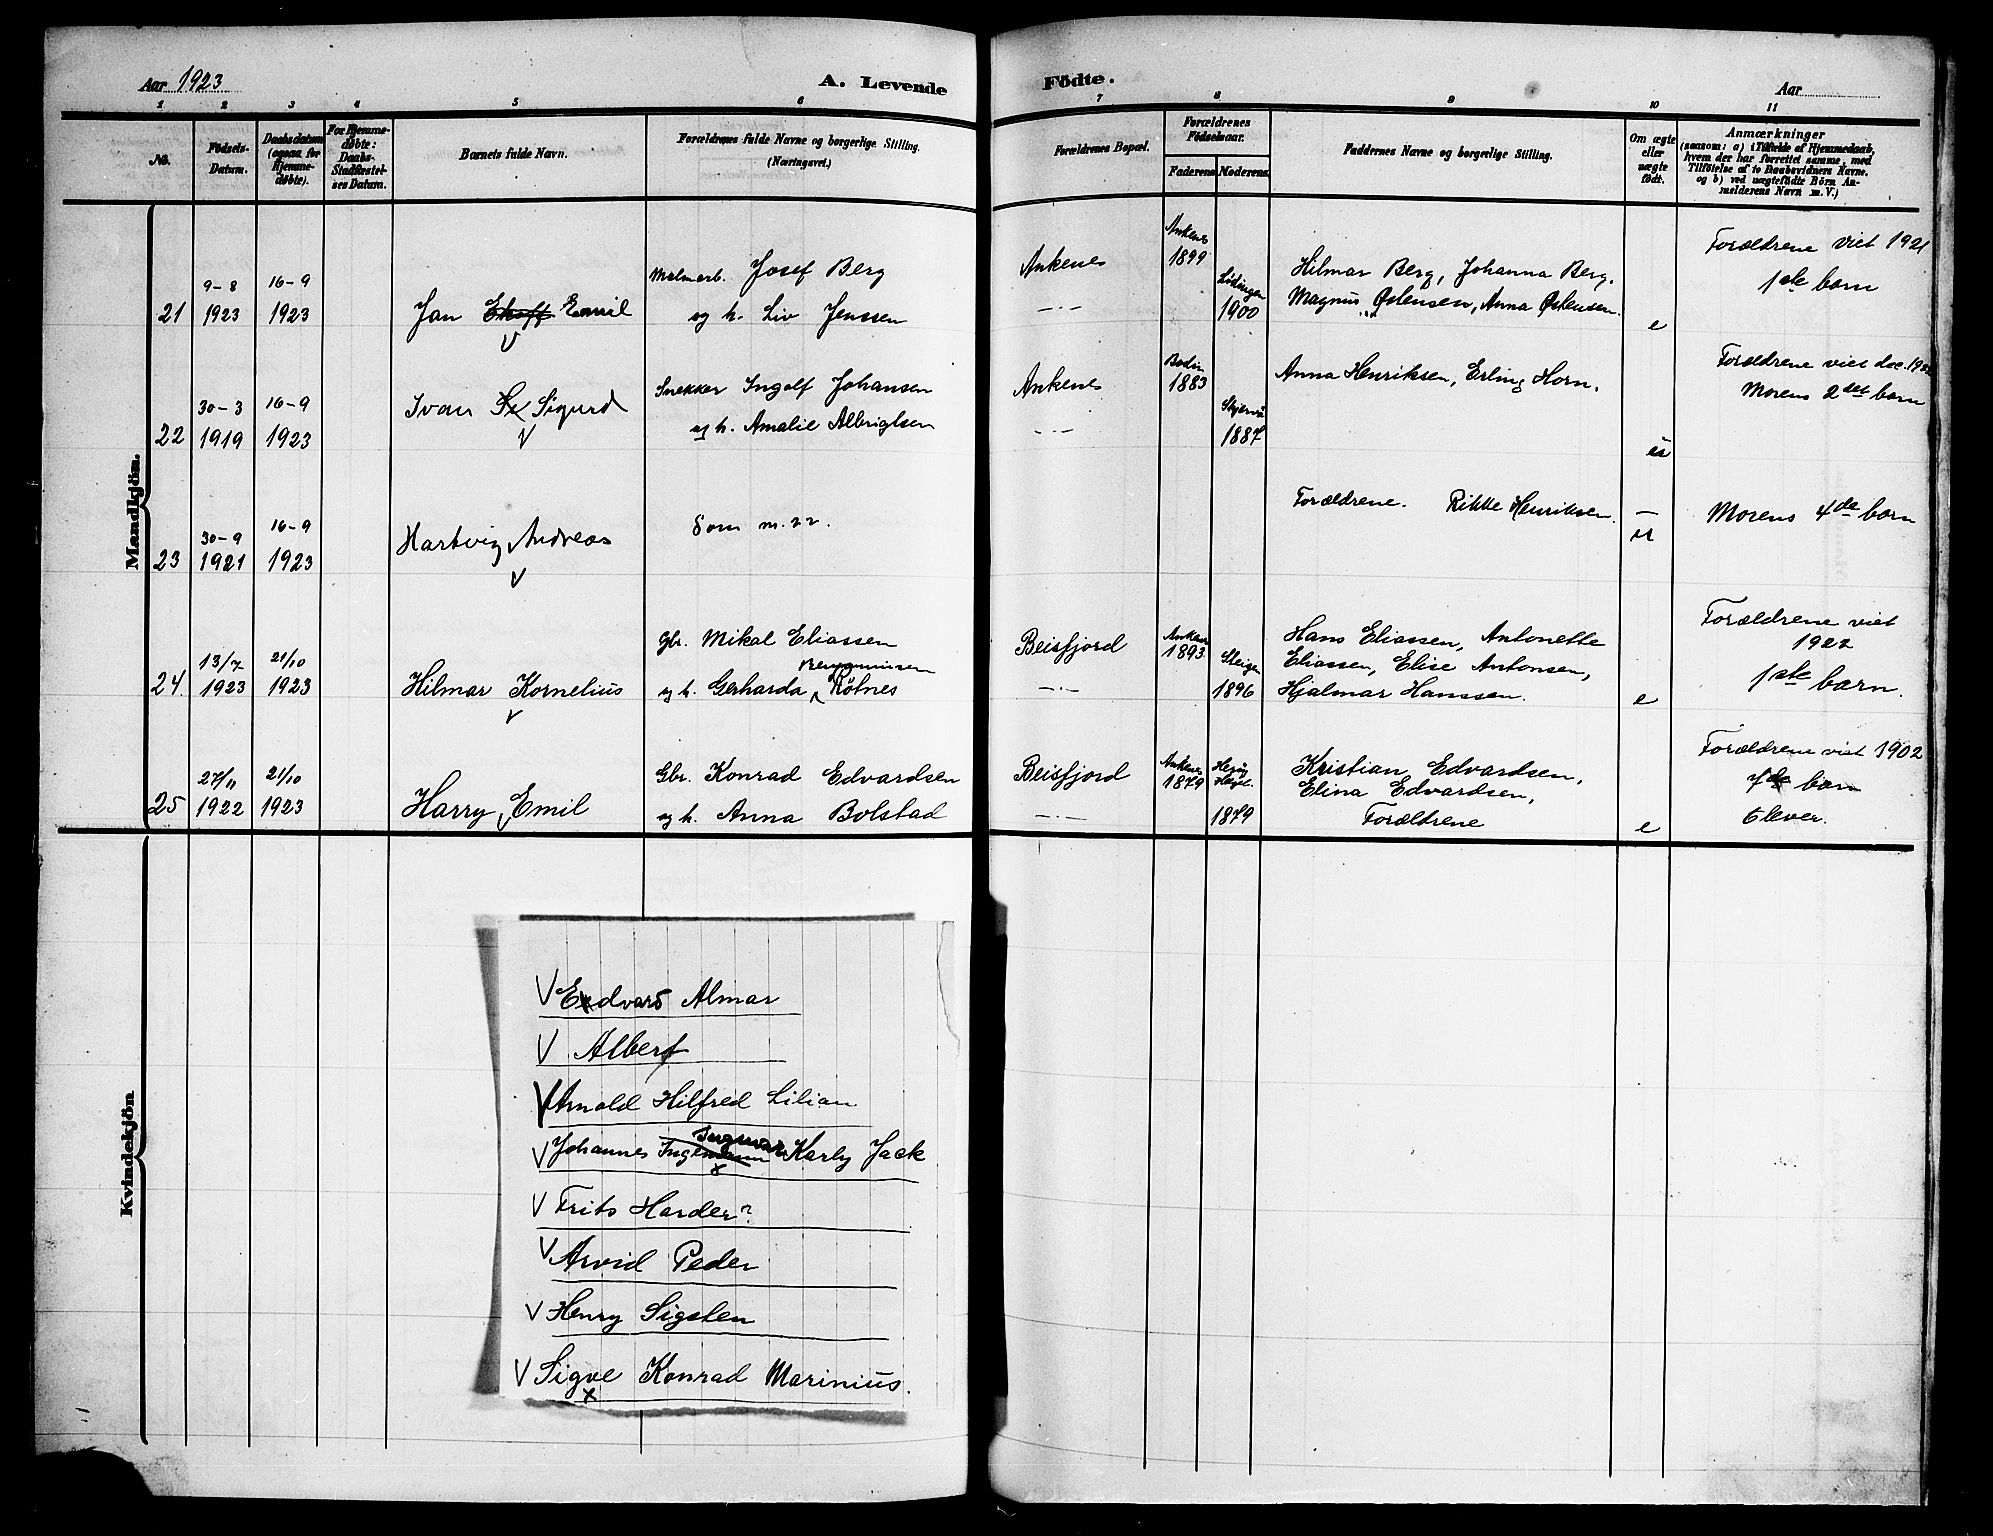 Aar 1923
A. Levende
Födte.
Aar
1 2 3 4 5 6 7 8 9 10 11
No.
Födsels-
Datum.
Daabsdatum
(ogsaa for
Hjemme-
døbte).
For Hjemme-
døbte:
Daabs-
Stadfæstel-
ses Datum.
Barnets fulde Navn.
Forældrenes fulde Navne og borgerlige Stilling.
(Næringsvei.)
Forældrenes Bopæl.
Forældrenes
Födselsaar.
Faderens Moderens
Faddernes Navne og borgerlige Stilling.
Om ægte
eller
uægte
født.
Anmærkninger
(saasom: a) i Tilfælde af Hjemmedaab,
hvem der har forrettet samme, med
Tilföielse af to Daabsvidners Navne.
og b) ved uægtefødte Börn An-
melderens Navn m. V.)
Mandkjön.
21
9-8
1923
16-9
1923
Jan Emil
V
Malmarb. Josef Berg
og h. Liv Jenssen
Ankenes
-"-
Ankenes
1899
Lödingen
1900
Hilmar Berg, Johanna Berg,
Magnus Östensen, Anna Östensen.
e
Forældrene viet 1921
1ste barn
22
30-3
1919
16-9
1923
Ivan Sigurd
V
Snekker Ingolf Johansen
og h. Amalie Albrigtsen
Ankenes
-"-
Bodin
1883
Skjervö
1887
Anna Henriksen, Erling Horn.
Forældrene viet dec.
Morens 2det barn
23
30-9
1921
16-9
1923
Hartvig Andreas
V
Som n. 22.
Forældrene. Rikke Henriksen.
Morens 4de barn
24
13/7
1923
21/10
1923
Hilmar Kornelius
V
Gbr. Mikal Eliassen
og h. Gerharda Rötnes
Beisfjord
-"-
Ankenes
1893
Steigen
1896
Hans Eliassen, Antonette
Eliassen, Elise Antonsen,
Hjalmar Hanssen.
e
Forældrene viet
1922
1ste barn.
25
27/11
1922
21/10
1923
Harry Emil
V
Gbr. Konrad Edvardsen
og h. Anna Bolstad
Beisfjord
-"-
Ankenes
1879
1879
Kristian Edvardsen,
Elina Edvardsen,
Forældrene
e
Forældrene viet 1902
7de barn
6 lever.
Kvindekjön
V Edvard Almar
V Albert
V Arnold Hilfred Lilian
V Johannes Ingmar Karly Jack
V Frits Harder?
V Arvid Peder
V Henry Sigsten
V Sigve Konrad Marinius.
x